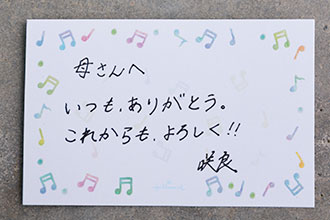 母さんへ
いつも、ありがとう。
これからも、よろしく!!
咲良